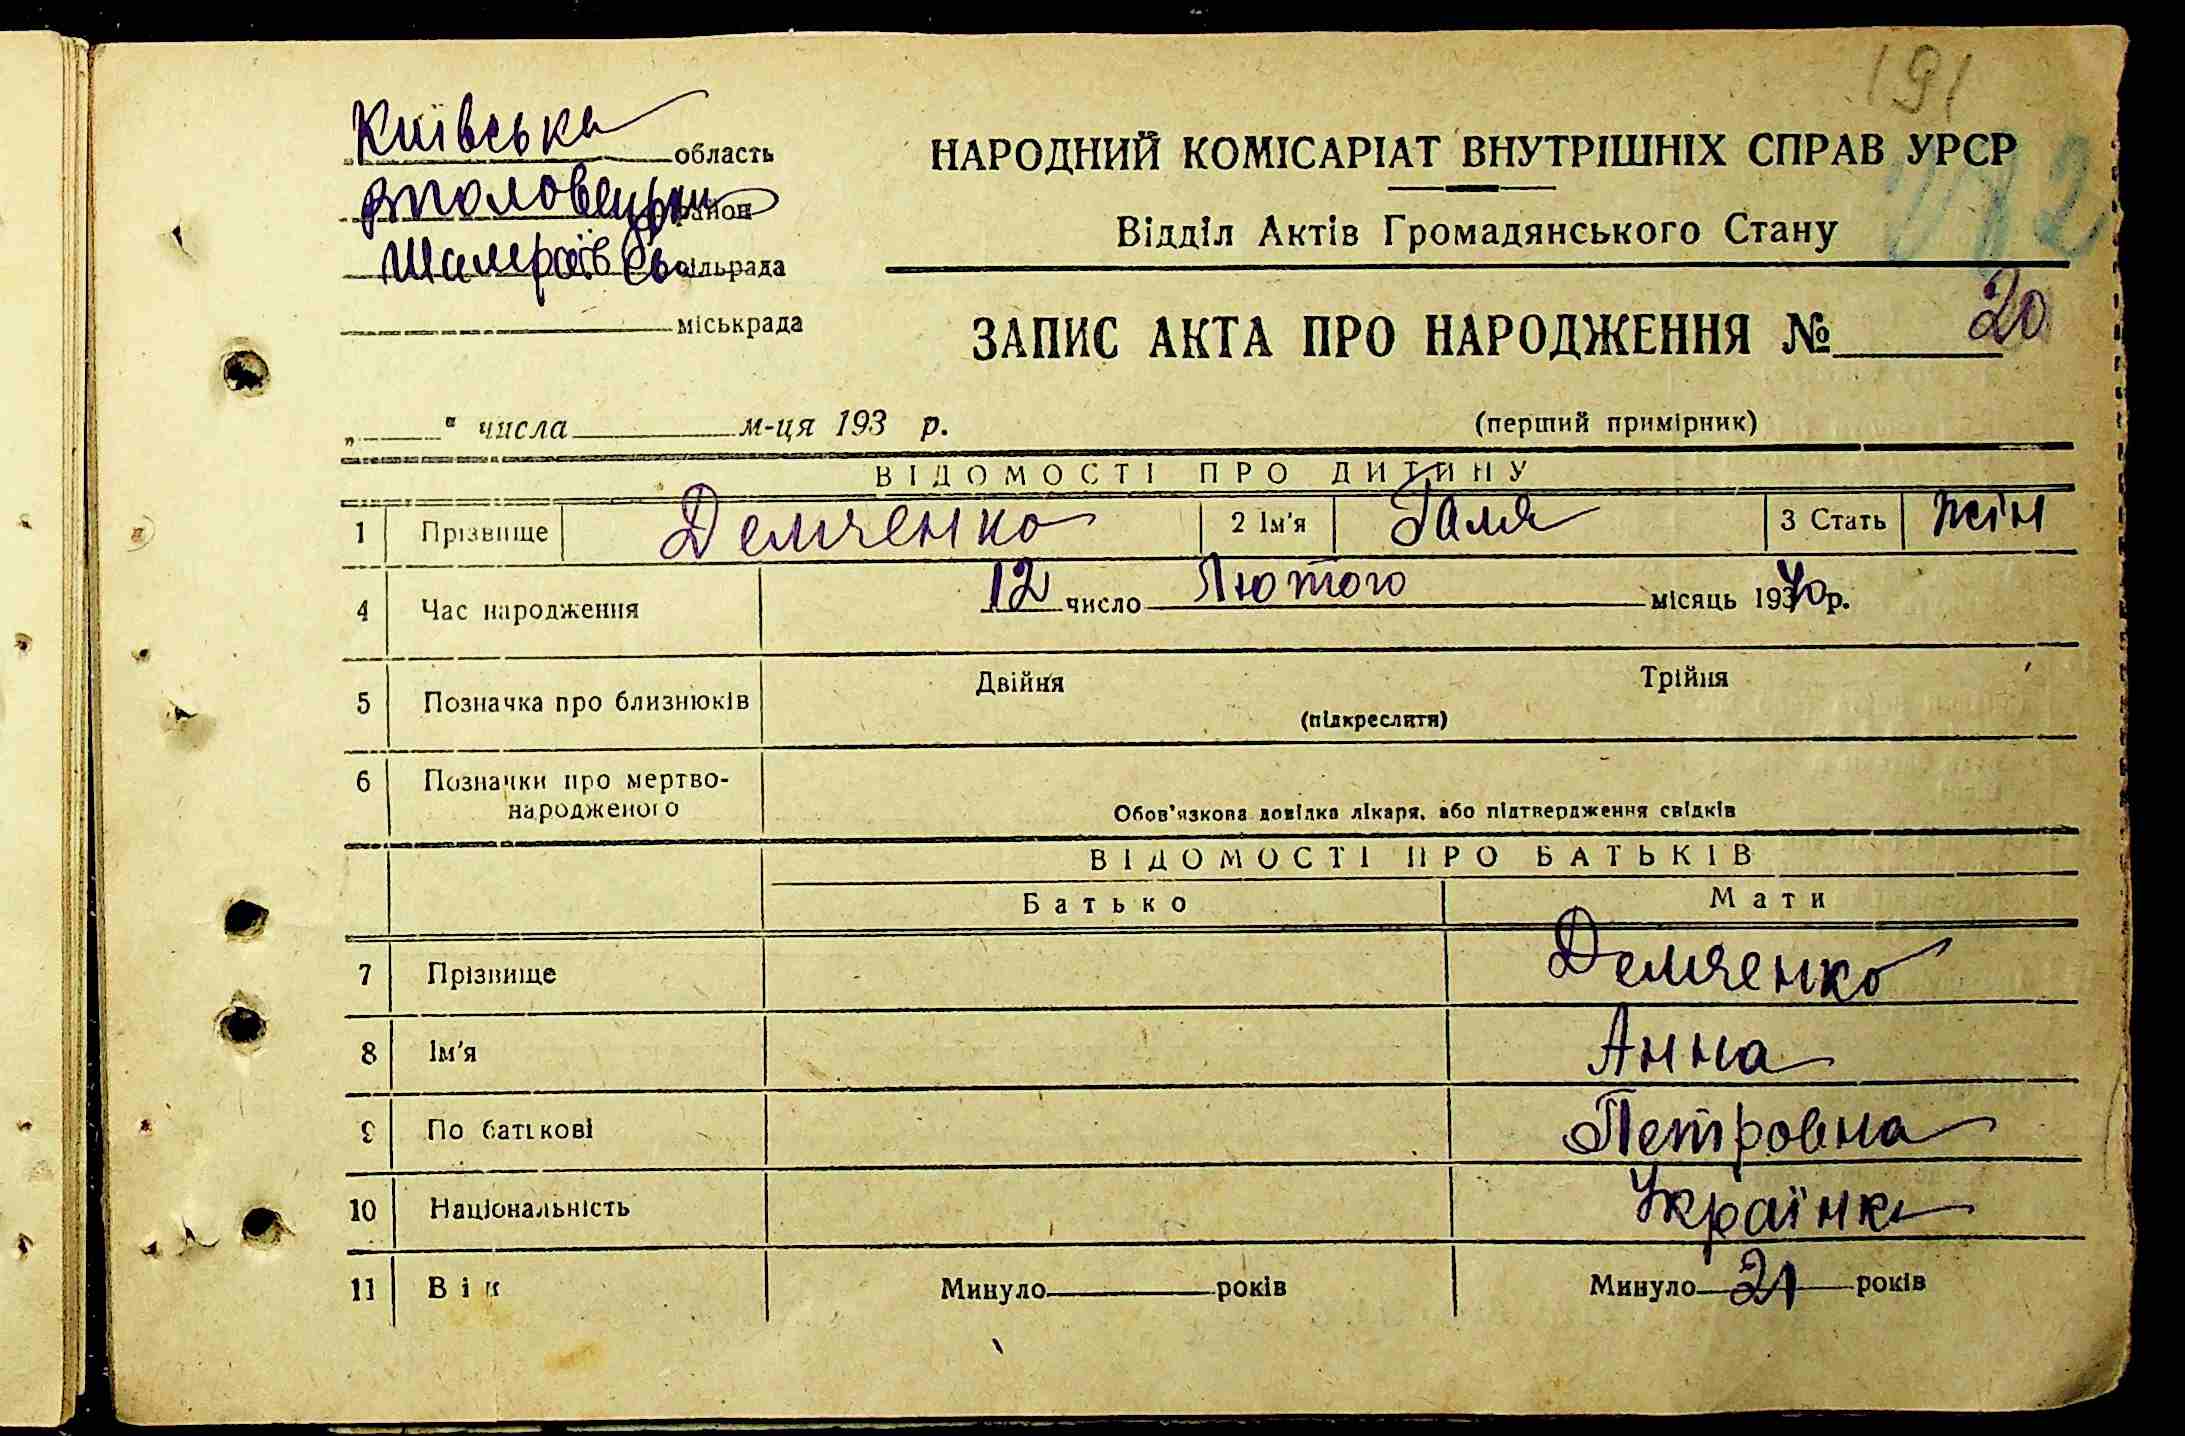 191
Київська область
район
Шамраївсь сільрада
міськрада
НАРОДНИЙ КОМІСАРІАТ ВНУТРІШНІХ СПРАВ УРСР
Відділ Актів Громадянського Стану
ЗАПИС АКТА ПРО НАРОДЖЕННЯ № 20
„ “ числа м-ця 193 р.
(перший примірник)
ВІДОМОСТІ ПРО ДИТИНУ
1 Прізвище Демченко 2 Ім'я Галя 3 Стать жін
4 Час народження 12 число Лютого місяць 1940 р.
5 Позначка про близнюків Двійня Трійня
(підкреслити)
6 Позначки про мертво-
народженого
Обов'язкова довідка лікаря, або підтвердження свідків
ВІДОМОСТІ ПРО БАТЬКІВ
Батько Мати
7 Прізвище Демченко
8 Ім'я Анна
9 По батькові Петровна
10 Національність Українка
11 Вік Минуло років Минуло 21 років